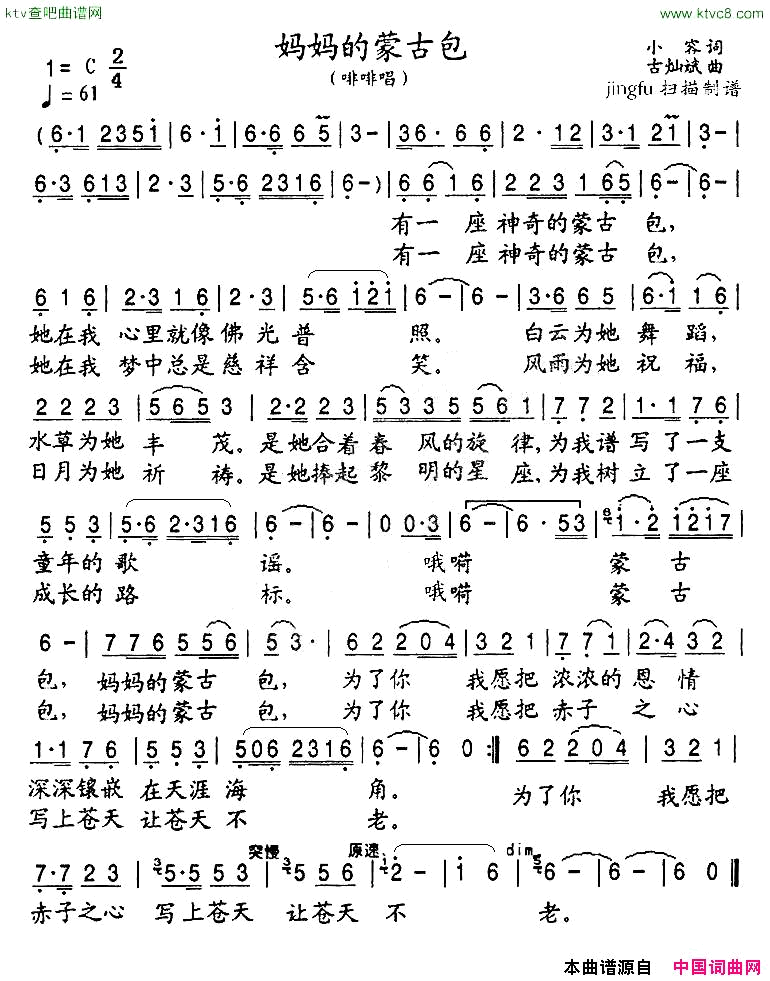 ktv查吧曲谱网
www.ktvc8.com
妈妈的蒙古包
(啡啡唱)
小容词
古灿斌曲
jingfu 扫描制谱
1= C 2/4
♩= 61
(6·1 2351 | 6·1 | 6·6 6 5 | 3- | 36· 6 6 | 2·12 | 3·1 2 1 | 3- |
6·3 613 | 2·3 | 5·6 2316 | 6-) | 6 6 1 6 | 2 2 3 1 6 5 | 6- | 6- |
有一 座 神奇的蒙古 包,
有一 座 神奇的蒙古 包,
6 1 6 | 2·3 1 6 | 2·3 | 5·6 1 2 1 | 6- | 6- | 3·6 6 5 | 6 1 1 6 |
她在我 心里就像佛光普 照。 白云为她 舞 蹈,
她在我 梦中总是慈祥含 笑。 风雨为她 祝 福,
2 2 2 3 | 5 6 5 3 | 2·2 2 3 | 5 3 3 5 5 6 1 | 7 7 2 | 1·1 7 6 |
水草为她 丰 茂。是她合着春 风的旋 律,为我谱 写了一支
日月为她 祈 祷。是她捧起黎 明的星 座,为我树 立了一座
5 5 3 | 5·6 2·316 | 6- | 6-0 | 0 0·3 | 6- | 6·53 | 1·2 1217 |
童年的 歌 谣。 哦嗬 蒙 古
成长的 路 标。 哦嗬 蒙 古
6- | 7 7 6 5 5 6 | 5 3· | 6 2 2 0 4 | 3 2 1 | 7 7 1 | 2·4 3 2 |
包, 妈妈的蒙古 包, 为了你 我愿把 浓浓的 恩 情
包, 妈妈的蒙古 包, 为了你 我愿把 赤子 之 心
1·1 7 6 | 5 5 5 | 506 2316 | 6- | 6 0 :‖ 6 2 2 0 4 | 3 2 1 |
深深镶嵌 在天涯 海 角。 为了你 我愿把
写上苍天 让苍天 不 老。
突慢 原速 dim
7·7 2 3 | 5·5 5 3 | 5 5 5 | 2- | 1 6 | 6- | 6- | 6 0 ‖
赤子之心 写上苍天 让苍天 不 老。
本曲谱源自 中国词曲网